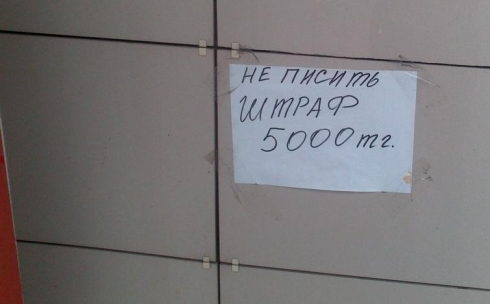 НЕ ПИСИТЬ
ШТРАФ
5000тг.